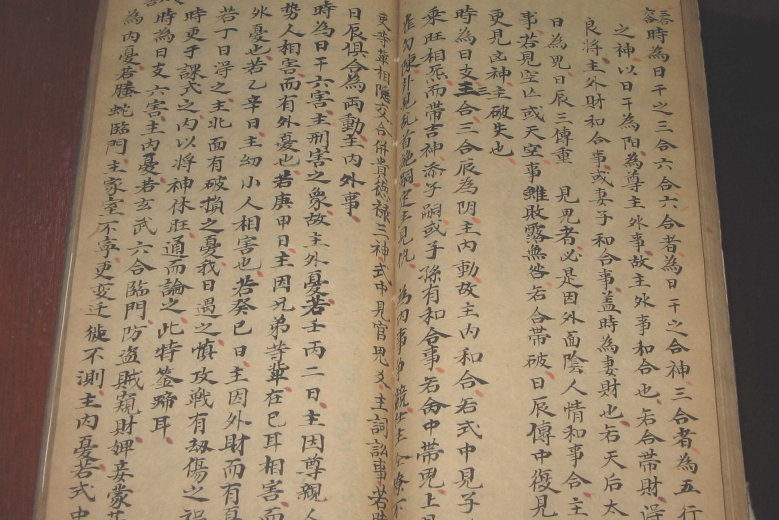 時為日干之三合六合六合者為日干之合神三合者為五行
之神以日干為陽為尊主外事故主外事和合也若合帶財得
良將主外財和合事或妻子和合事蓋時為妻財也若天后太
日為鬼日辰三傳重 見鬼者必是因外面陰人情和事合主
事若見空亡或天空事雖敗露無咎若合帶破日辰傳中復見
更見凶神主破失也
時為日支三合三合辰為阴主內動故主內和合若式中見子
乘旺相炁而帶吉神添子嗣或子孫有和合事若中帶鬼上見
為內事
更等輩相隱交合併貴德祿三神式中見官鬼多主詞訟事若時
日辰俱合為兩動主內外事
時為日干六害主刑害之象故主外憂若壬丙二日主因尊親人
势人相害而有外憂也若庚甲日主因兄弟等輩在巳耳相害而
外憂也若乙辛日主幼小人相害也若癸巳日主因外財而有
若丁日得之主北面有破損之憂我日遇之慎攻戰有刼傷之
時更于課式之內以將神休旺通而論之此特筌蹄耳
時為日支六害主內憂若玄武六合臨門防盜賊窺財婢妾蒙
為內憂若螣蛇臨門主家室不寧更変迁徙不測主內憂若式中